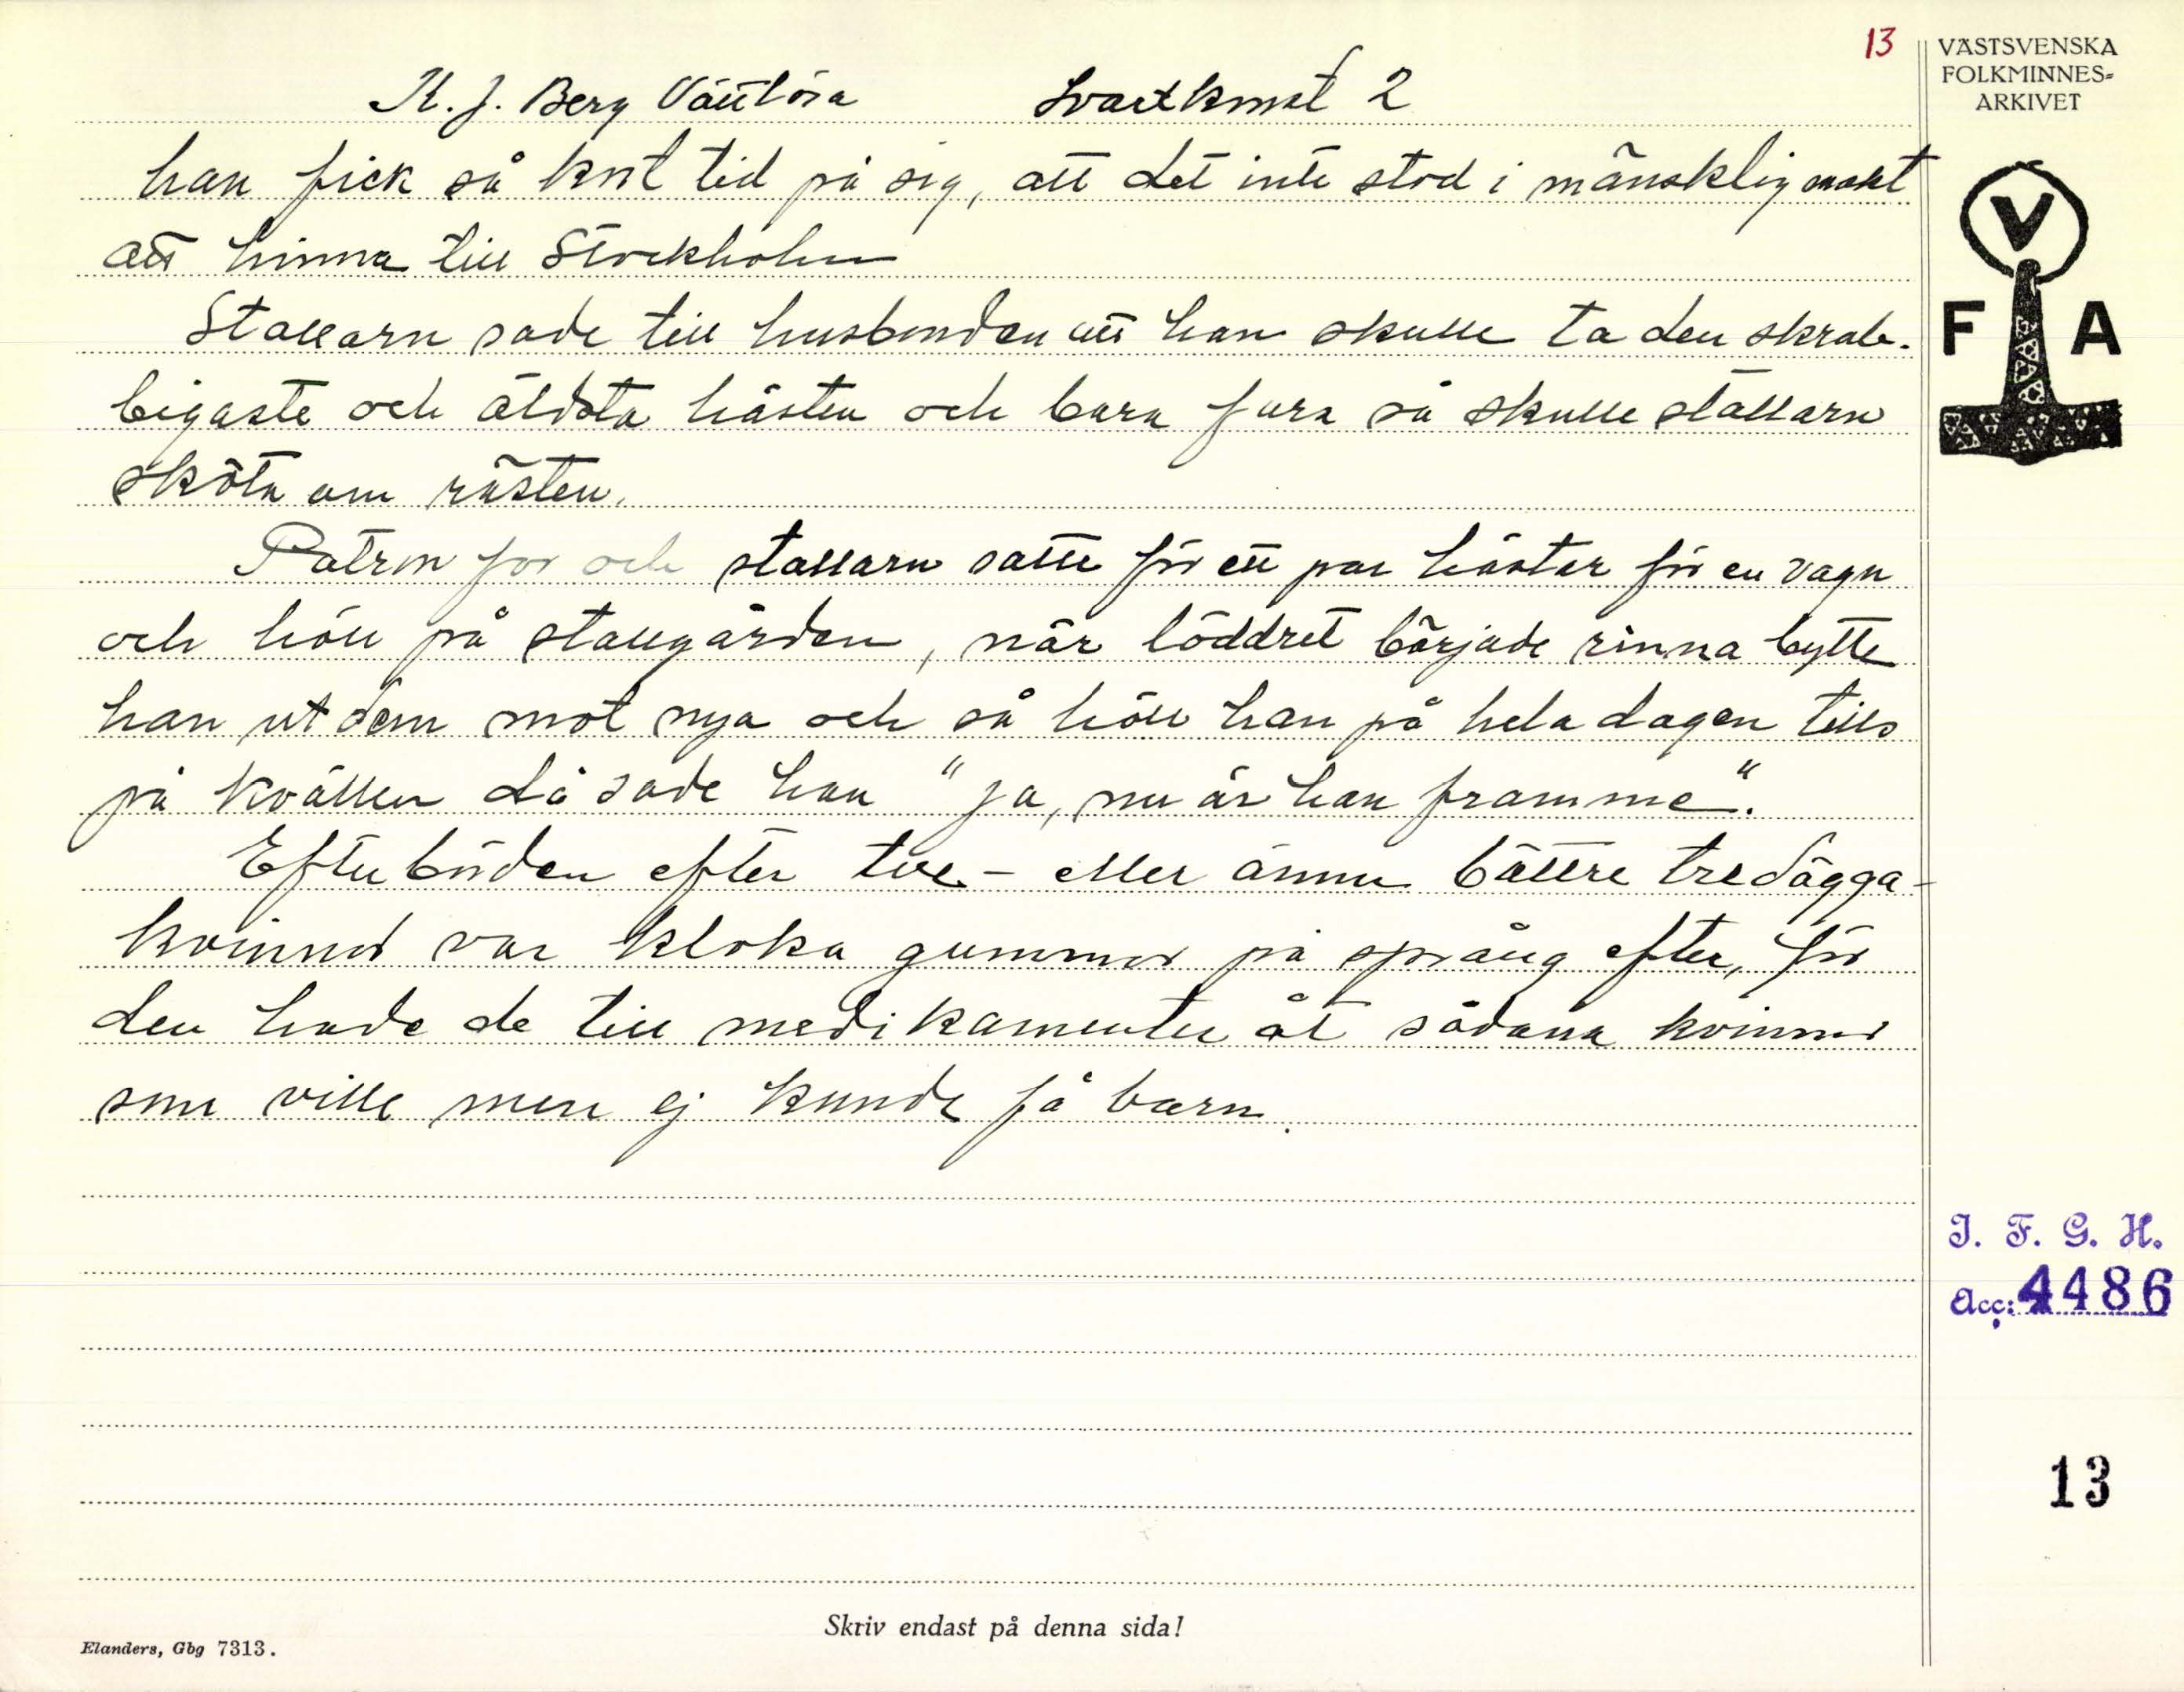 13
VÄSTSVENSKA
FOLKMINNES-
ARKIVET
K. J. Berg Vättlösa Svartkonst 2
han fick så kort tid på sig, att det inte stod i mänsklig makt
att hinna till Stockholm
Stallarn sade till husbonden att han skulle ta den skrab-
bigaste och äldsta hästen och bara fara så skulle stallarn
sköta om rästen.
Patron for och stallarn satte för ett par hästar för en vagn
och höll på stallgården, när löddret började rinna bytte
han ut dem mot nya och så höll han på hela dagen tills
på kvällen då sade han "ja, nu är han framme".
Efterbörden efter tve- eller ännu bättre tredägga-
kvinnor var kloka gummor på språng efter, för
den hade de till medikamenter åt sådana kvinnor
som ville men ej kunde få barn.
V
F A
I. F. G. H.
Acc: 4486
13
Skriv endast på denna sida!
Elanders, Gbg 7313.